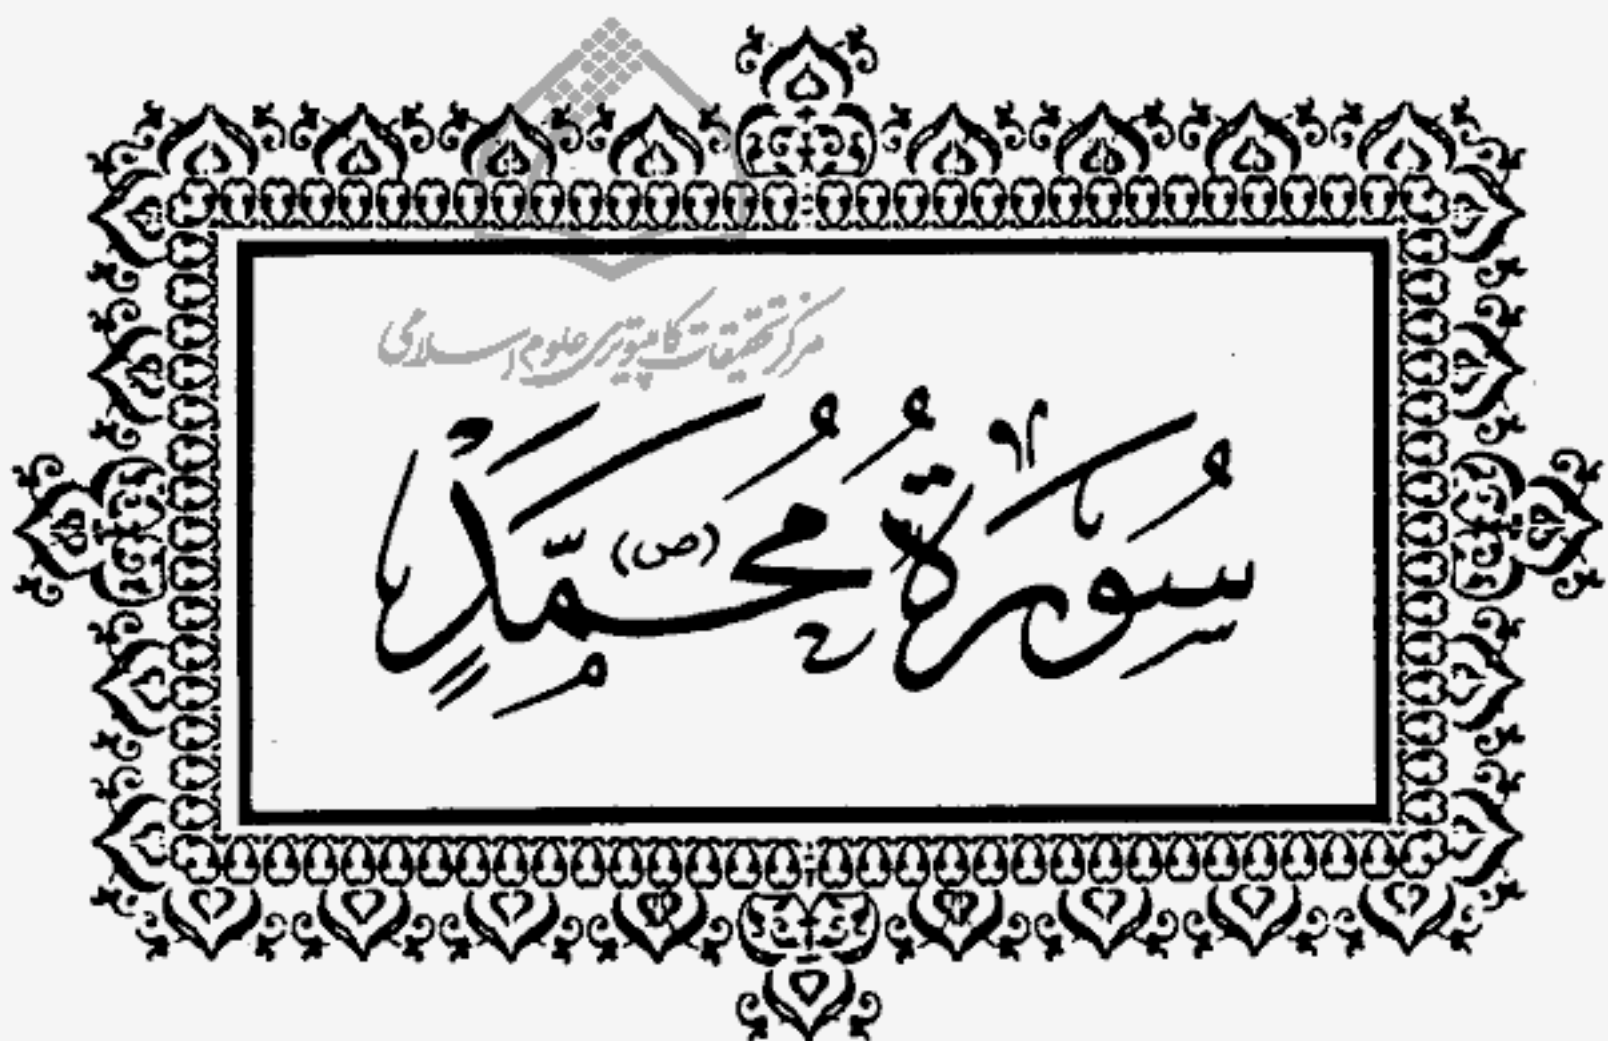 مرکز تحقیقات کامپیوتری علوم اسلامی
سُورَةُ مُحَمَّدٍ (ص)